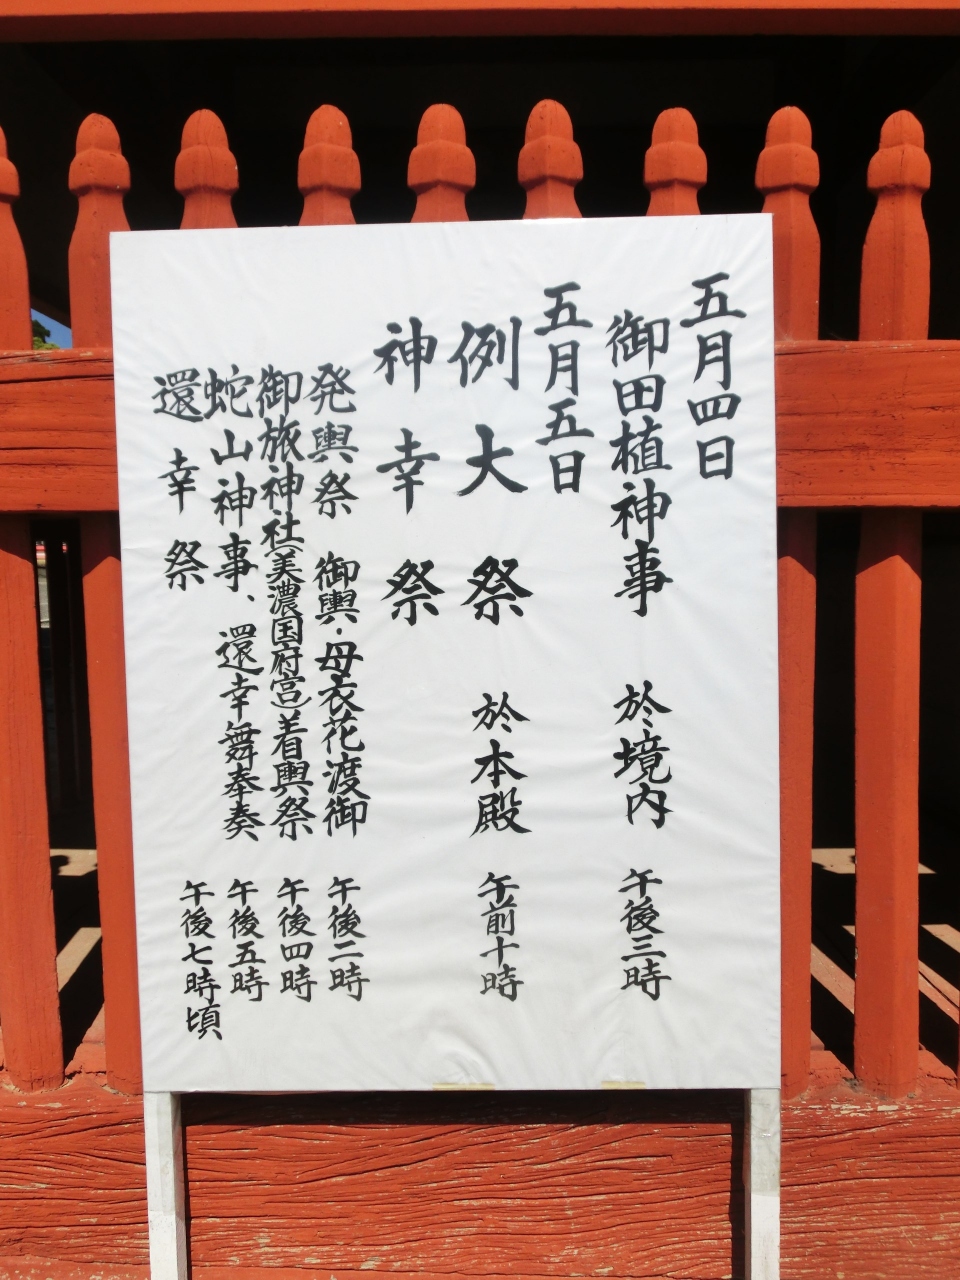 五月四日
御田植神事 於境内 午後三時
五月五日
例大祭 於本殿 午前十時
神幸祭
発輿祭 御輿・母衣花渡御 午後二時
御旅神社(美濃国府宮)着輿祭 午後四時
蛇山神事、還幸舞奉奏 午後五時
還幸祭 午後七時頃